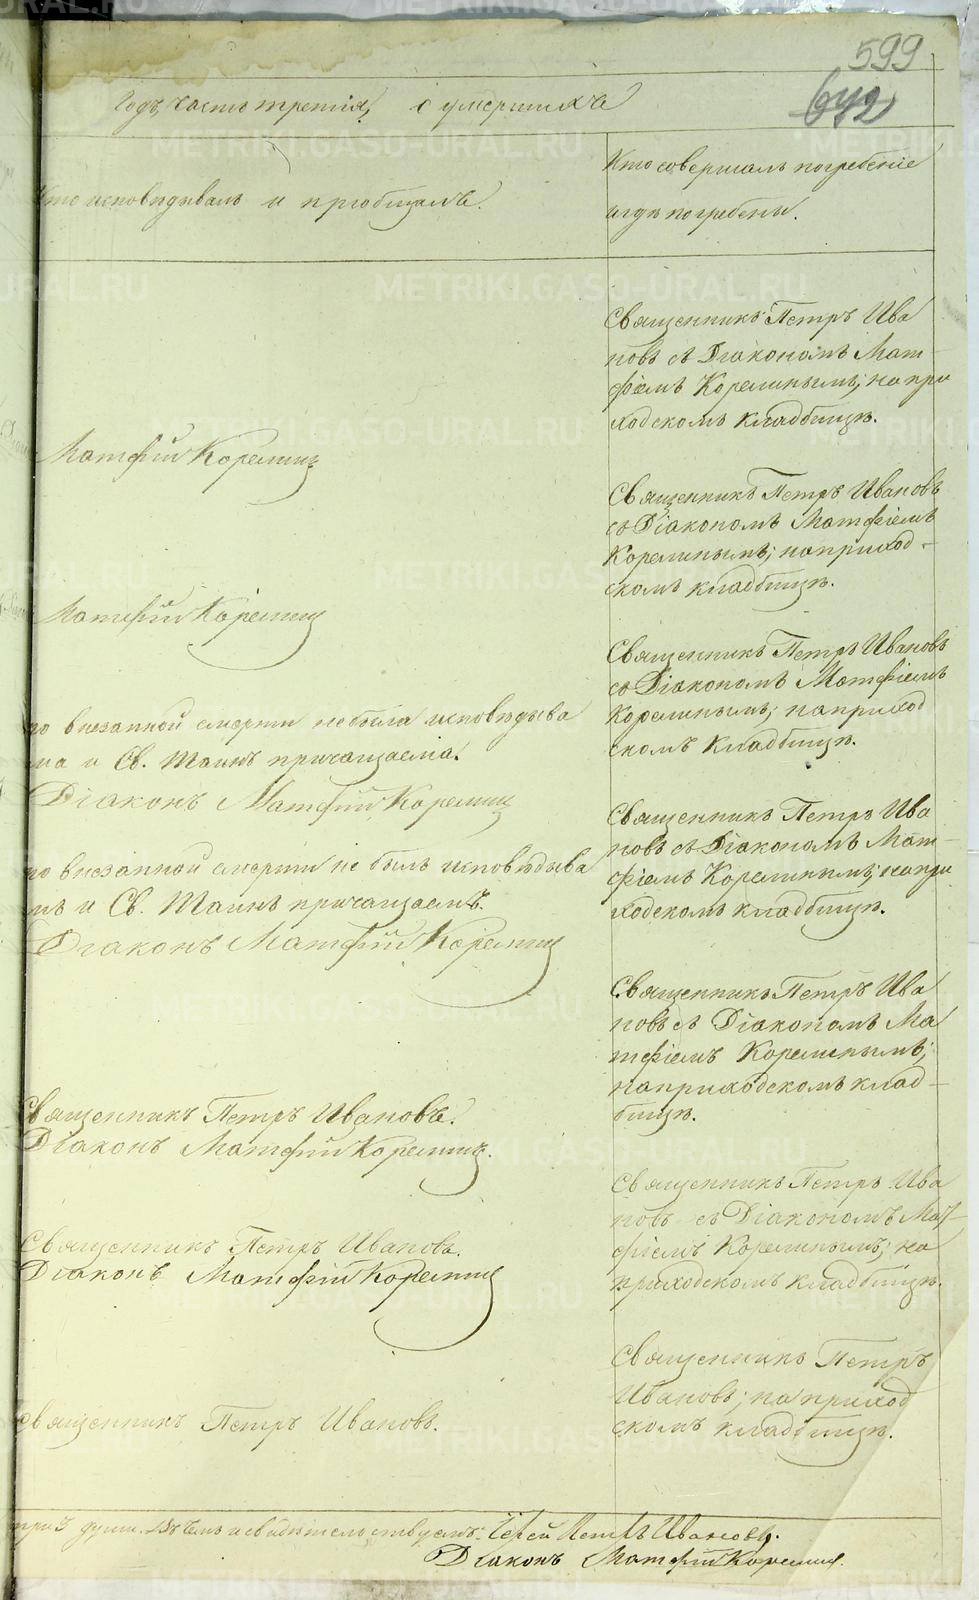 599
642
Годъ, часть третія, о умершихъ
Кто исповѣдывалъ и пріобщалъ.
Кто совершалъ погребеніе
и гдѣ погребены.
Священникъ Петръ Ива
новъ съ Діакономъ Мат-
фіемъ Корелинымъ; на при
ходскомъ кладбищѣ.
Матфій Корелинъ
Священникъ Петръ Ивановъ
съ Діакономъ Матфіемъ
Корелинымъ; на приход-
скомъ кладбищѣ.
Матфій Корелинъ
Священникъ Петръ Ивановъ
съ Діакономъ Матфіемъ
Корелинымъ; на приход
скомъ кладбищѣ.
по внезапной смерти небыла исповѣдыва
на и Св. Таинъ причащаема.
Діаконъ Матфій Корелинъ
Священникъ Петръ Ива
новъ съ Діакономъ Мат-
фіемъ Корелинымъ; на при
ходскомъ кладбищѣ.
по внезапной смерти не былъ исповѣдыва
нъ и Св. Таинъ причащаемъ.
Діаконъ Матфій Корелинъ
Священникъ Петръ Ива
новъ съ Діакономъ Ма
тфіемъ Корелинымъ;
на приходскомъ клад-
бищѣ.
Священникъ Петръ Ивановъ.
Діаконъ Матфій Корелинъ.
Священникъ Петръ Ива
новъ съ Діакономъ Мат-
фіемъ Корелинымъ; на
приходскомъ кладбищѣ.
Священникъ Петръ Ивановъ.
Діаконъ Матфій Корелинъ
Священникъ Петръ
Ивановъ; на приход
скомъ кладбищѣ.
Священникъ Петръ Ивановъ.
три 3 души. Въ чемъ и свидѣтельствуемъ: Іерей Петръ Ивановъ.
Діаконъ Матфій Корелинъ.
METRIKI.GASO-URAL.RU